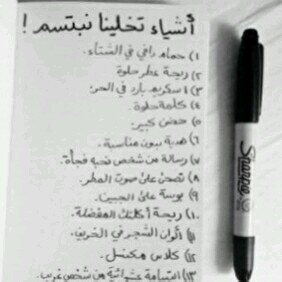 أشياء تخلينا نبتسم !
١) حمام دافي في الشتاء.
٢) ريحة عطر حلوة
٣) اسكريم بارد في الحر.
٤) كلمة حلوة.
٥) حضن كبير.
٦) هدية بدون مناسبة.
٧) رسالة من شخص نحبه فجأة.
٨) نصحى على صوت المطر.
٩) بوسة على الجبين.
١٠) ريحة أكلتك المفضلة.
١١) ألوان الشجر في الخريف.
١٢) كلاس مكنسل.
١٣) ابتسامة عشوائية من شخص غريب.
Sharpie